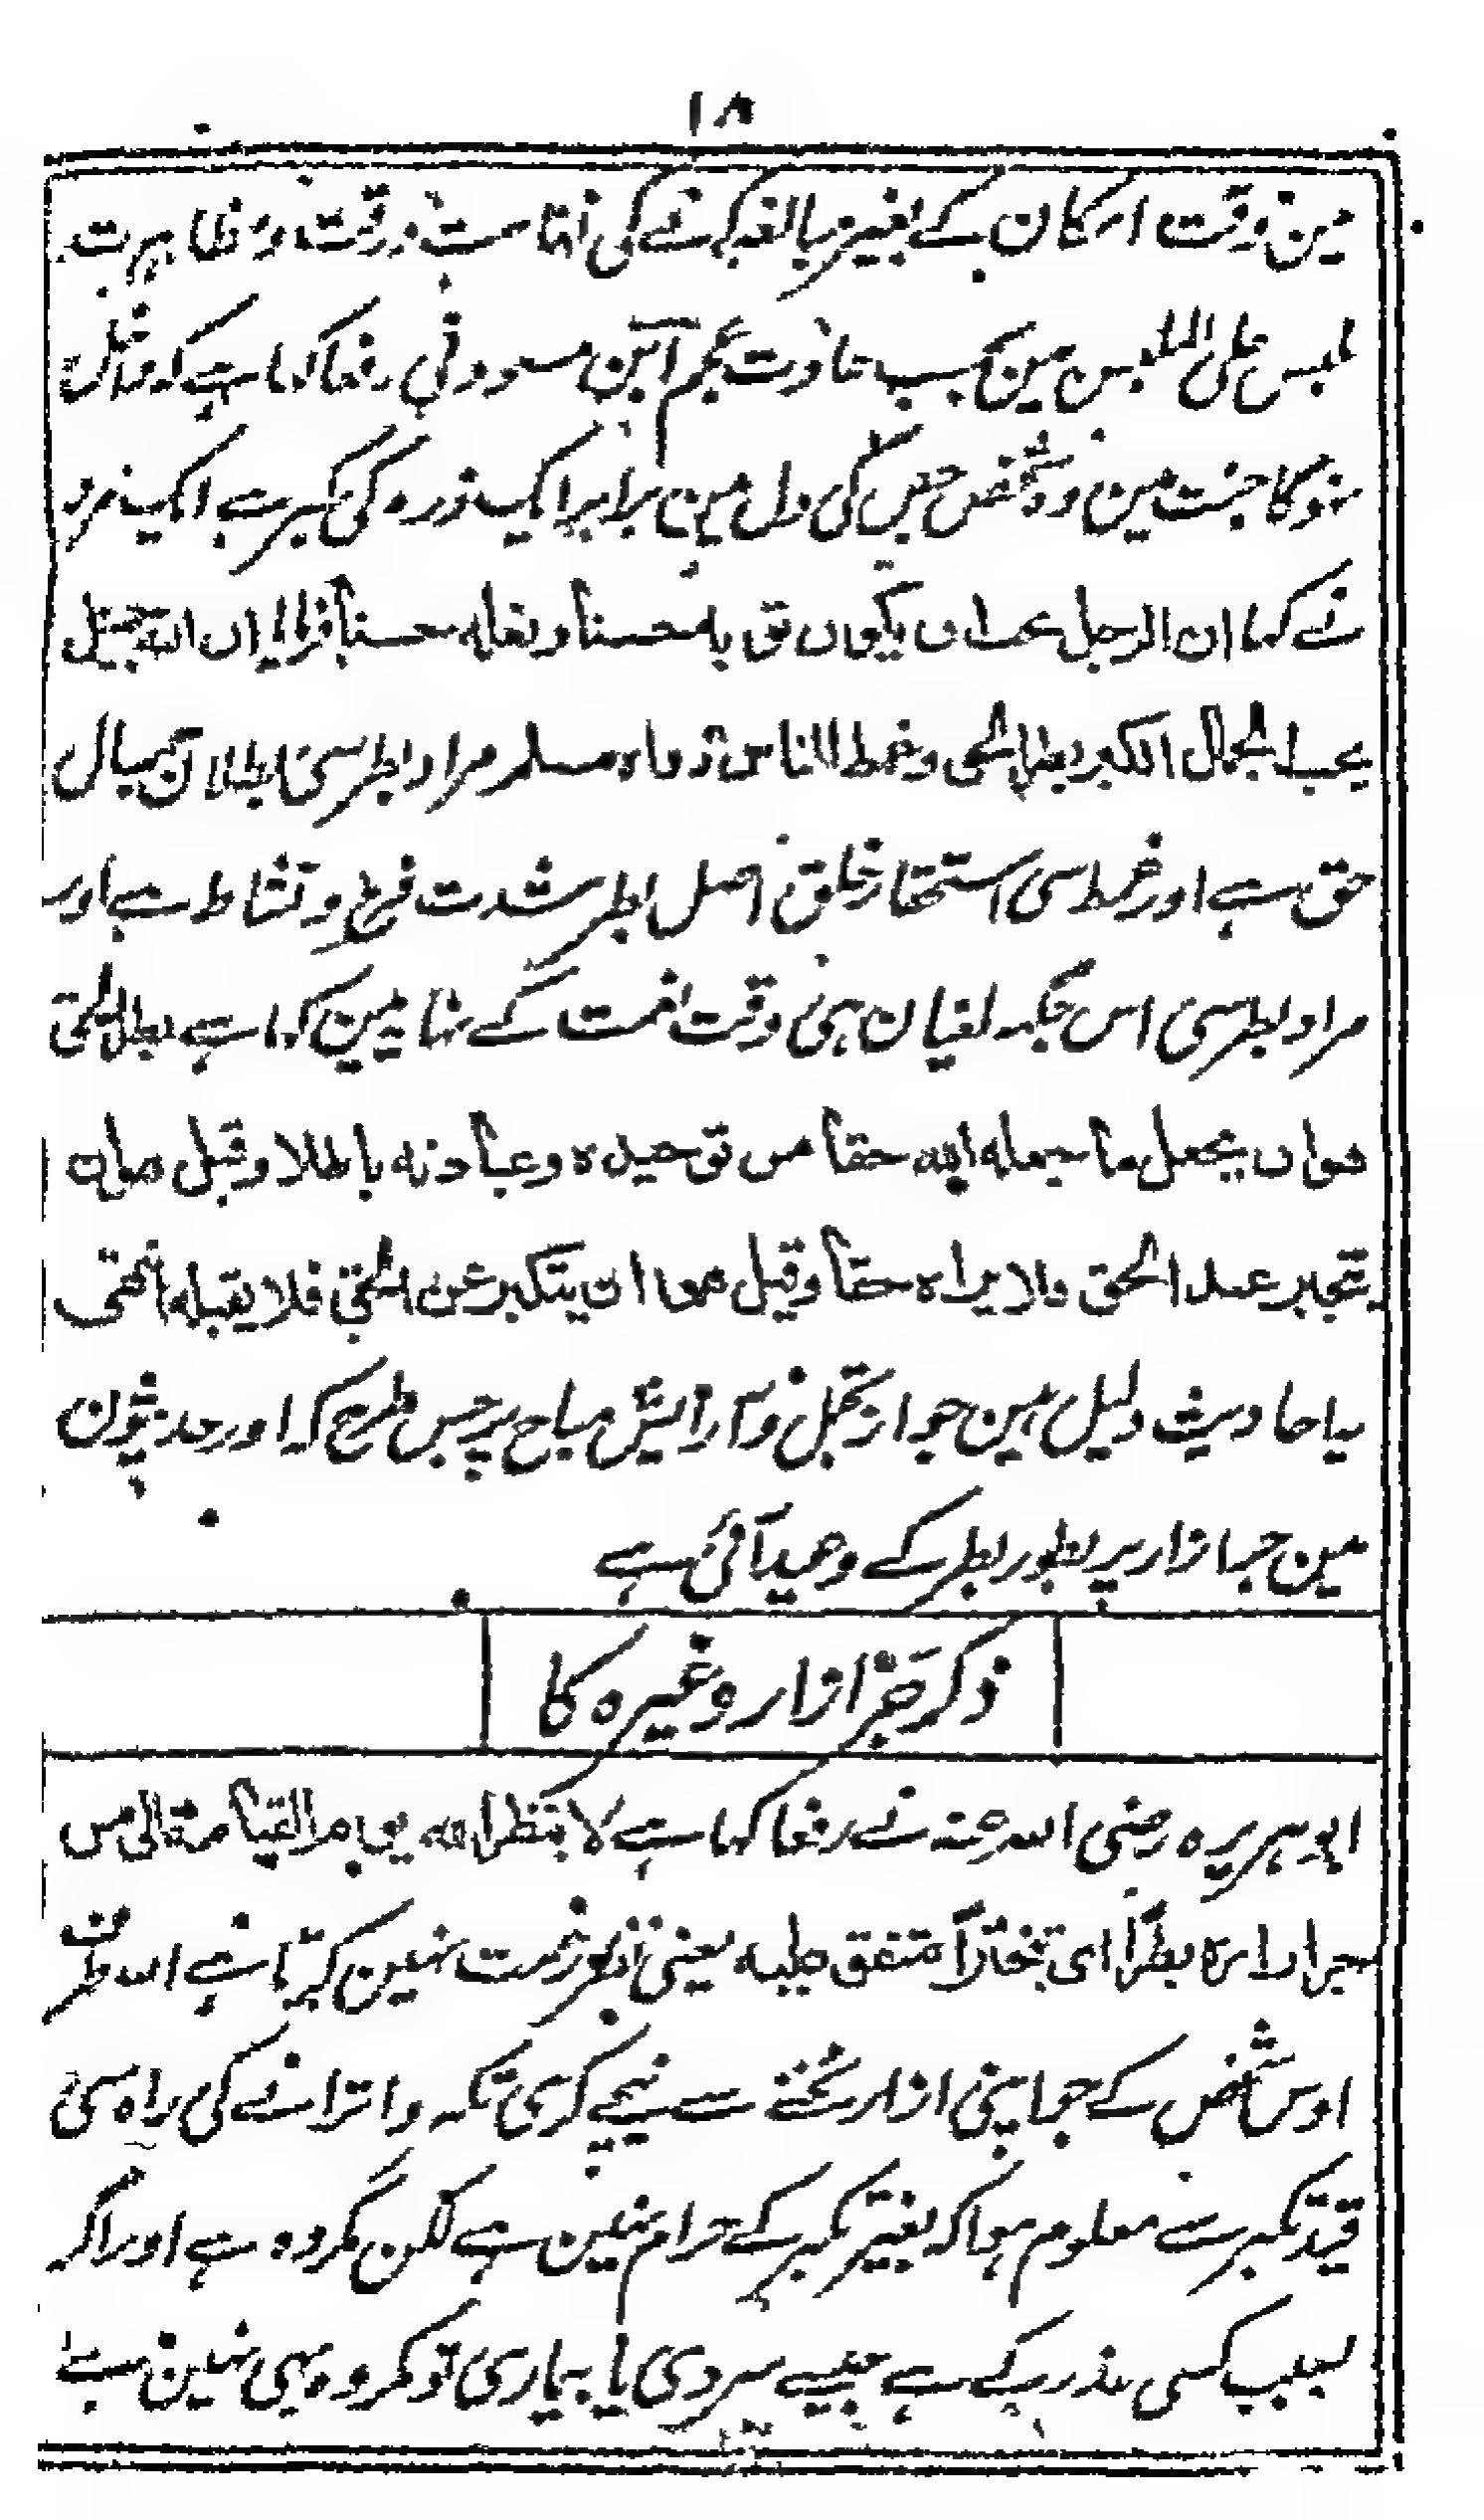 ۱۸
مین وقت امکان کے بغیر مبالغہ کرنے کی نفاست ورقت و مظاہرت
لبس علی الملبس مین بحسب عادت عجم آبن مسعود نی رفعا کہا ہے کہ داخل
نہوگا جنت مین وہ شخص جس کی دل مین برابر ایک ذرہ کی کبر ہے ایک مرد
نے کہا ان الرجل یحب ان یکون ثوبه حسنا ونعله حسنا فرمایا ان الله جمیل
یحب الجمال الکبر بطر الحق وغمط الناس رواہ مسلم مراد بطر سی ابطال
حق ہے اور غمط سی استحقار خلق اصل بطر شدت فرح و نشاط ہے اور
مراد بطر سی اس جگہ طغیان ہی وقت نعمت کے نہایہ مین کہا ہے بطر الحق
هو ان یجعل ما جعله الله حقا من توحیده وعبادته باطلا وقیل هو ان
یتجبر عند الحق فلا یراه حقا وقیل هو ان یتکبر عن الحق فلا یقبله انتهى
یہ احادیث دلیل ہین جواز تجمل و آرایش مباح پر جس طرح کہ اور حدیثون
مین جر ازار پر بطور بطر کے وعید آئی ہے
ذکر جَرِّ ازار وغیرہ کا
ابو ہریرہ رضی اللہ عنہ نے رفعا کہا ہے لا ینظر الله یوم القیامة الی من
جر ازاره بطرا ای تبخترا متفق علیه یعنی نظر رحمت نہین کرتا ہے اللہ طرف
اوس شخص کے جو اپنی ازار ٹخنے سے نیچے کری تکبر و اترانے کی راہ سی
قید تکبر سے معلوم ہوا کہ بغیر تکبر کے حرام نہین ہے لکن مکروہ ہے اور اگر
بسبب کسی عذر کے ہے جیسے سردی یا بیماری تو مکروہ بہی نہین ہے